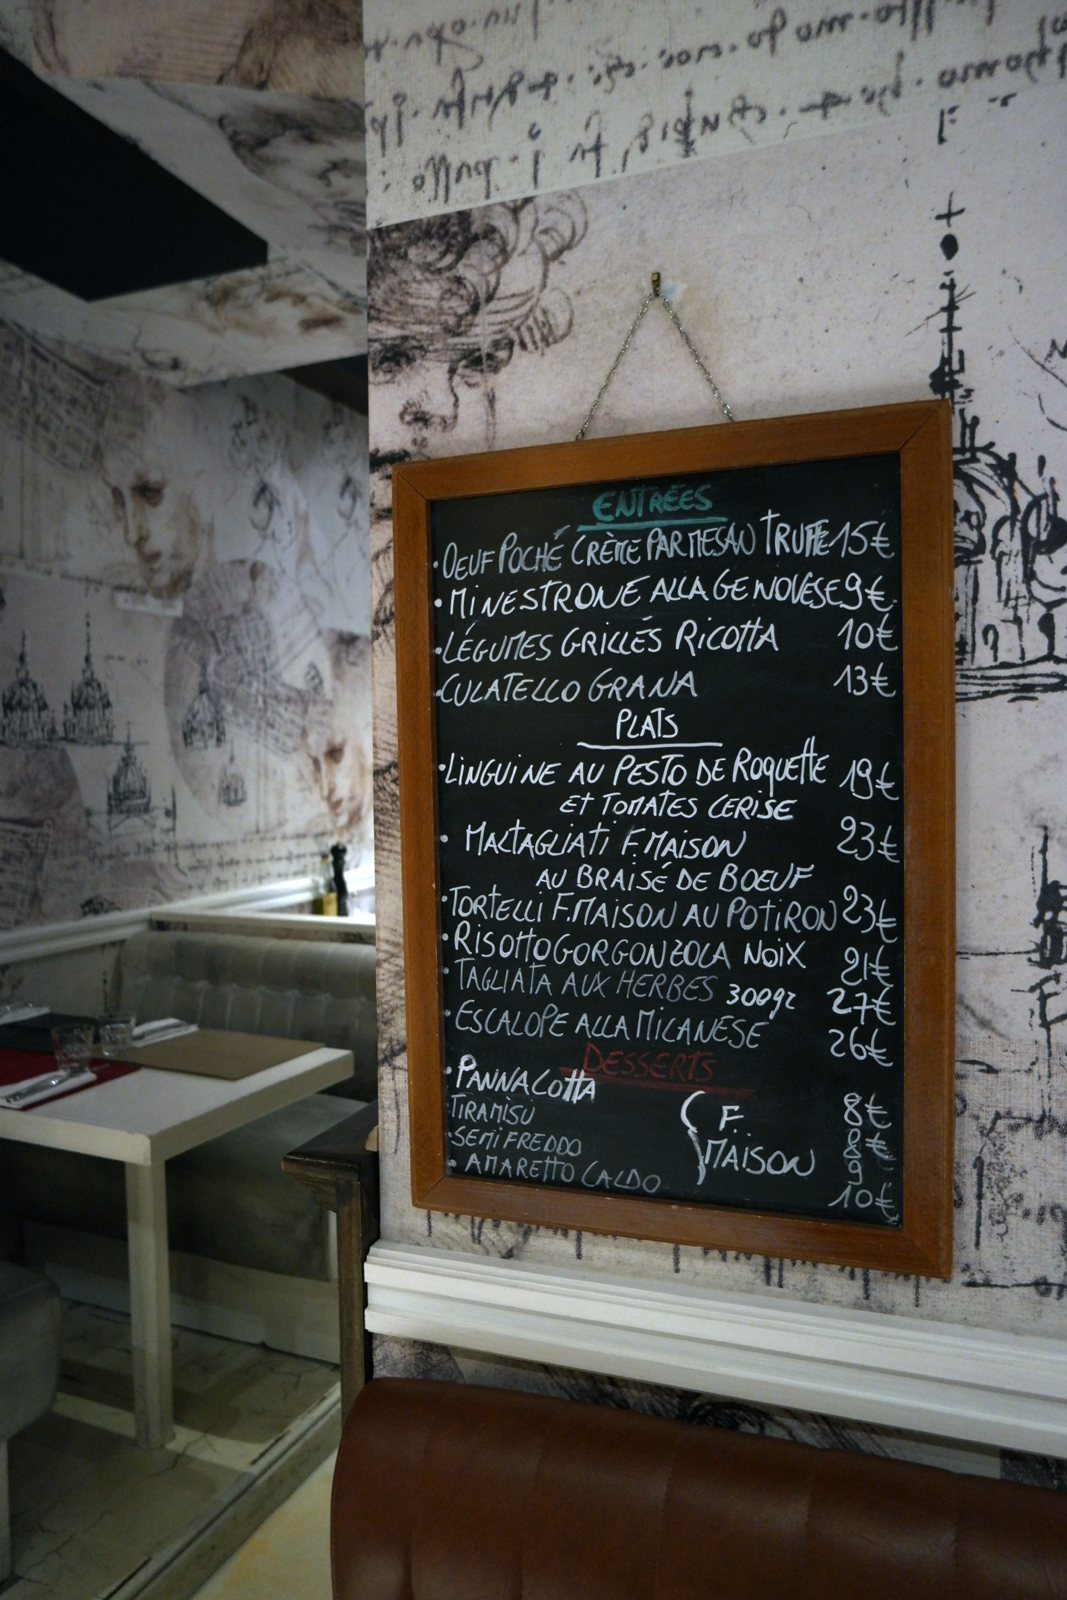 ENTRÉES
• OEUF POCHÉ CRÈME PARMESAN TRUFFE 15€
• MINESTRONE ALLA GENOVESE 9€
• LÉGUMES GRILLÉS RICOTTA 10€
• CULATELLO GRANA 13€
PLATS
• LINGUINE AU PESTO DE ROQUETTE 19€
ET TOMATES CERISE
• MALTAGLIATI F. MAISON 23€
AU BRAISÉ DE BOEUF
• TORTELLI F. MAISON AU POTIRON 23€
• RISOTTO GORGONZOLA NOIX 21€
• TAGLIATA AUX HERBES 300gr 27€
• ESCALOPE ALLA MILANESE 26€
DESSERTS
• PANNACOTTA 8€
• TIRAMISU F. 8€
• SEMIFREDDO MAISON 9
• AMARETTO CALDO 10€